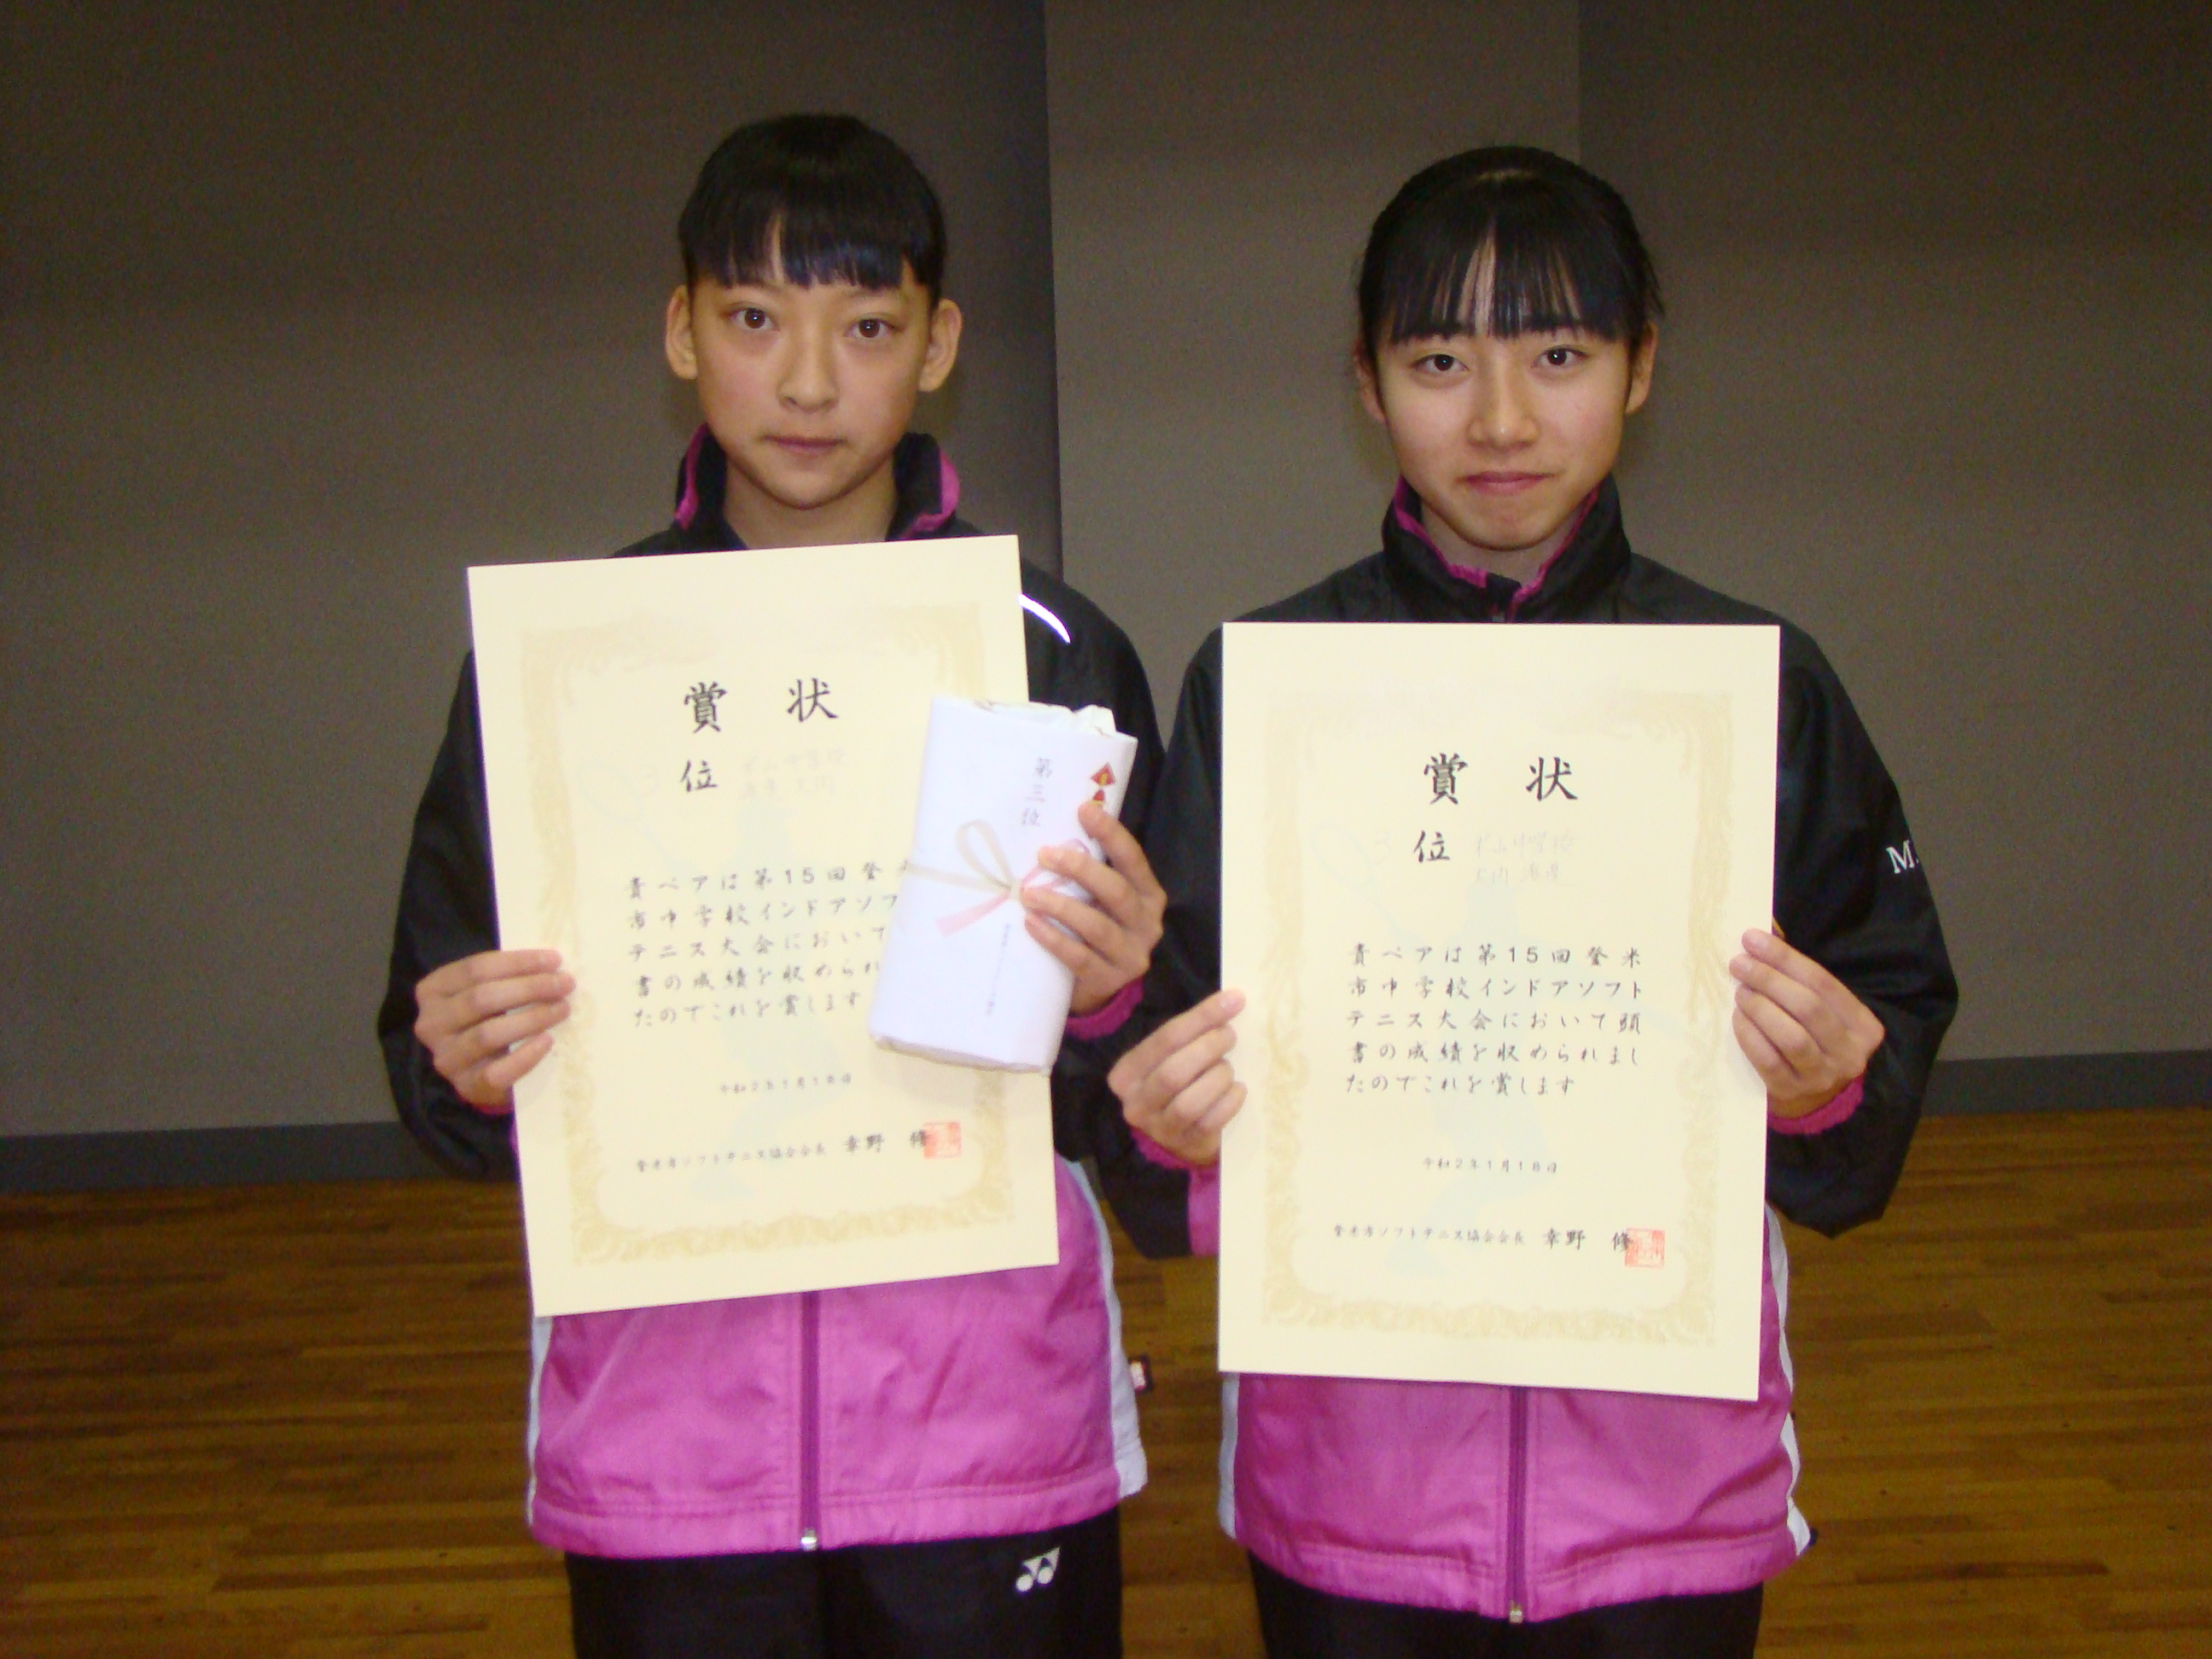 賞状
位
貴ペアは第15回登
市中学校インドアソフ
テニス大会において
書の成績を収められ
たのでこれを賞します
令和2年1月18日
登米市ソフトテニス協会会長 幸野 修
第三位
賞状
3位
貴ペアは第15回登米
市中学校インドアソフト
テニス大会において頭
書の成績を収められまし
たのでこれを賞します
令和2年1月18日
登米市ソフトテニス協会会長 幸野 修
M